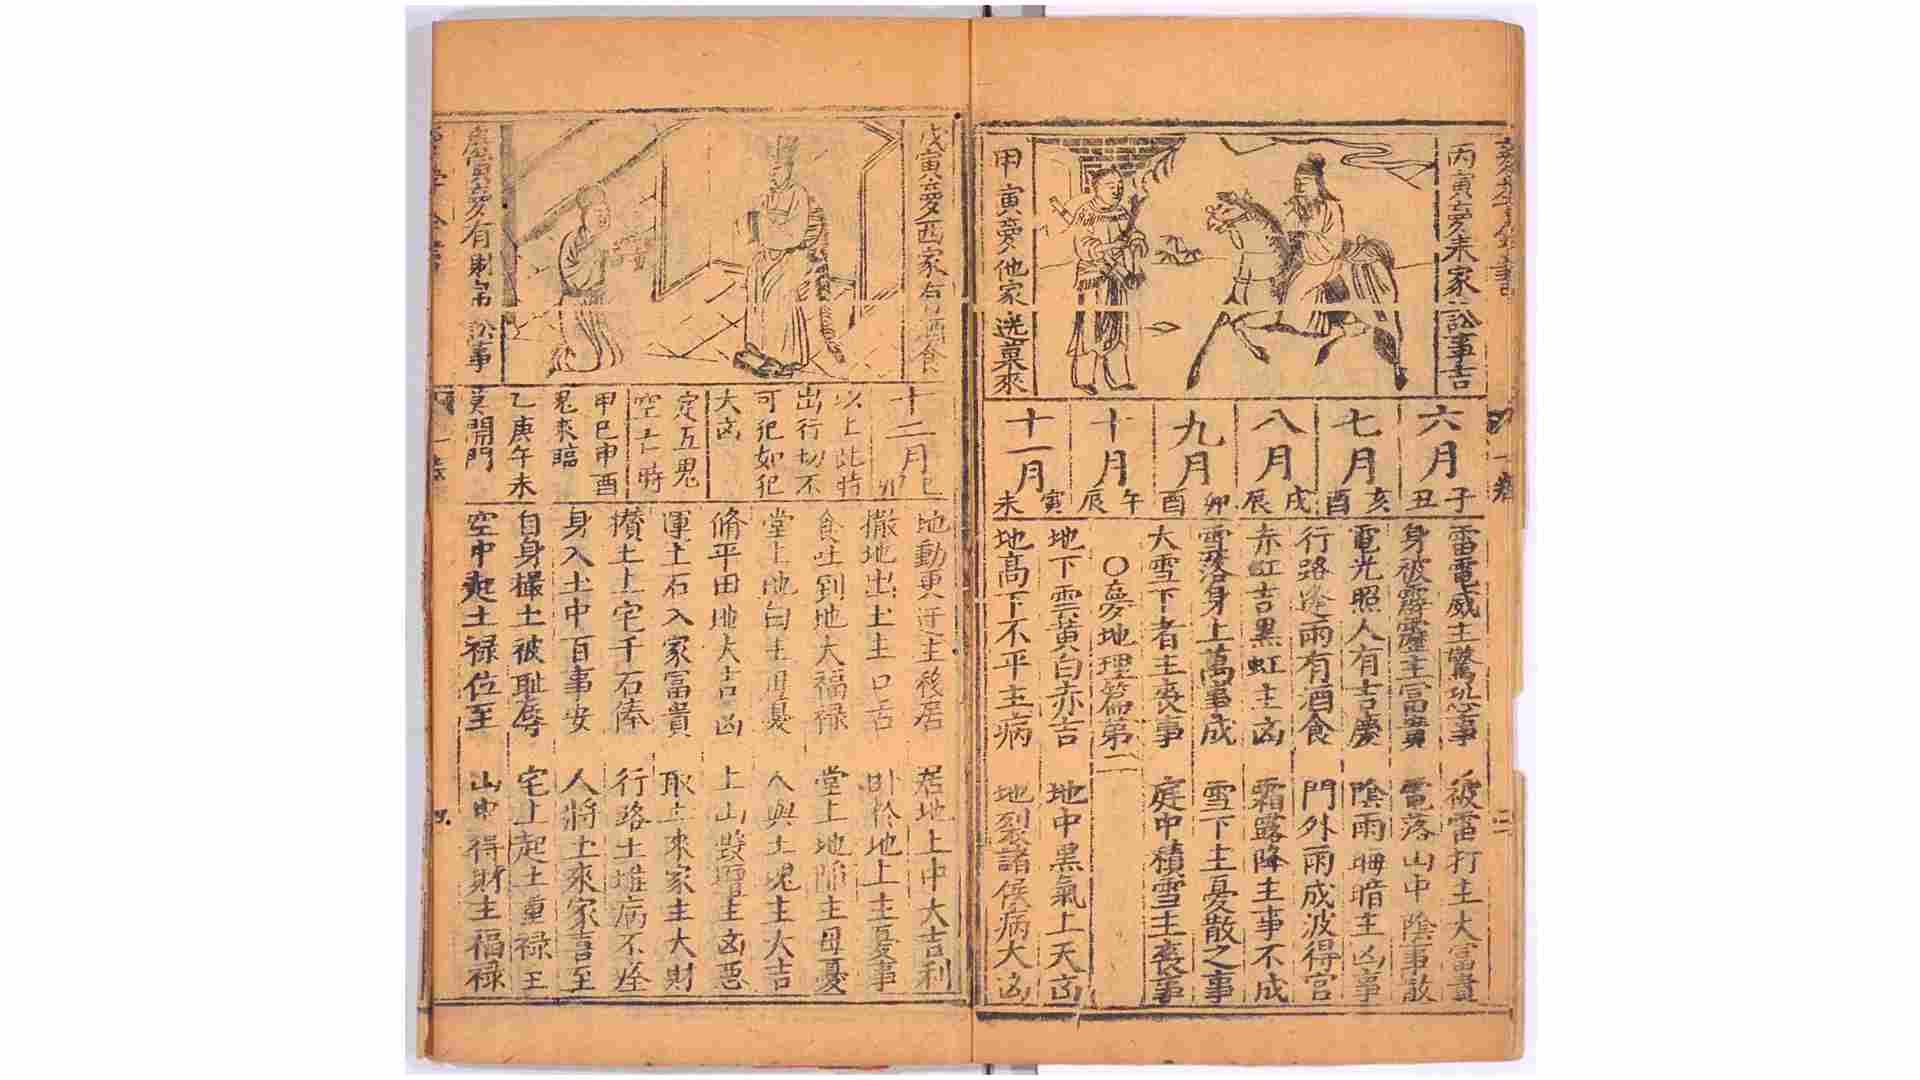 丙寅夢来家訟事吉
甲寅夢他家送菓來
六月
子丑
七月
亥酉
八月
戌辰
九月
卯酉
十月
午辰
十一月
寅未
雷電威主驚恐事
被雷打主大富貴
身被霹靂主富貴
電落山中陰事散
電光照人有吉慶
陰雨晦暗主凶事
行路逢雨有酒食
門外雨成波得官
赤虹吉黑虹主凶
霜露降主事不成
雪落身上萬事成
雪下主憂散之事
大雪下者主喪事
庭中積雪主喪事
○夢地理篇第二
地下雲黃白赤吉
地中黑氣上天凶
地高下不平主病
地裂諸侯病大凶
戊寅夢西家有酒食
庚寅夢有財帛訟事
十二月
巳卯
以上此時
出行切不
可犯如犯
大凶
定五鬼
空亡時
甲巳申酉
鬼來臨
乙庚午未
莫開門
地動更遷主移居
居地上中大吉利
撒地出土主口舌
卧於地上主憂事
食吐到地大福祿
堂上地陷主母憂
堂上地臼主母憂
人與土塊主大吉
脩平田地大吉凶
上山毀壇主凶惡
運土石入家富貴
取土來家主大財
攢土上宅千石俸
行路土堆病不痊
身入土中百事安
人將土來家喜至
自身撮土被耻辱
宅上起土重禄至
空中起土禄位至
山中得財主福禄